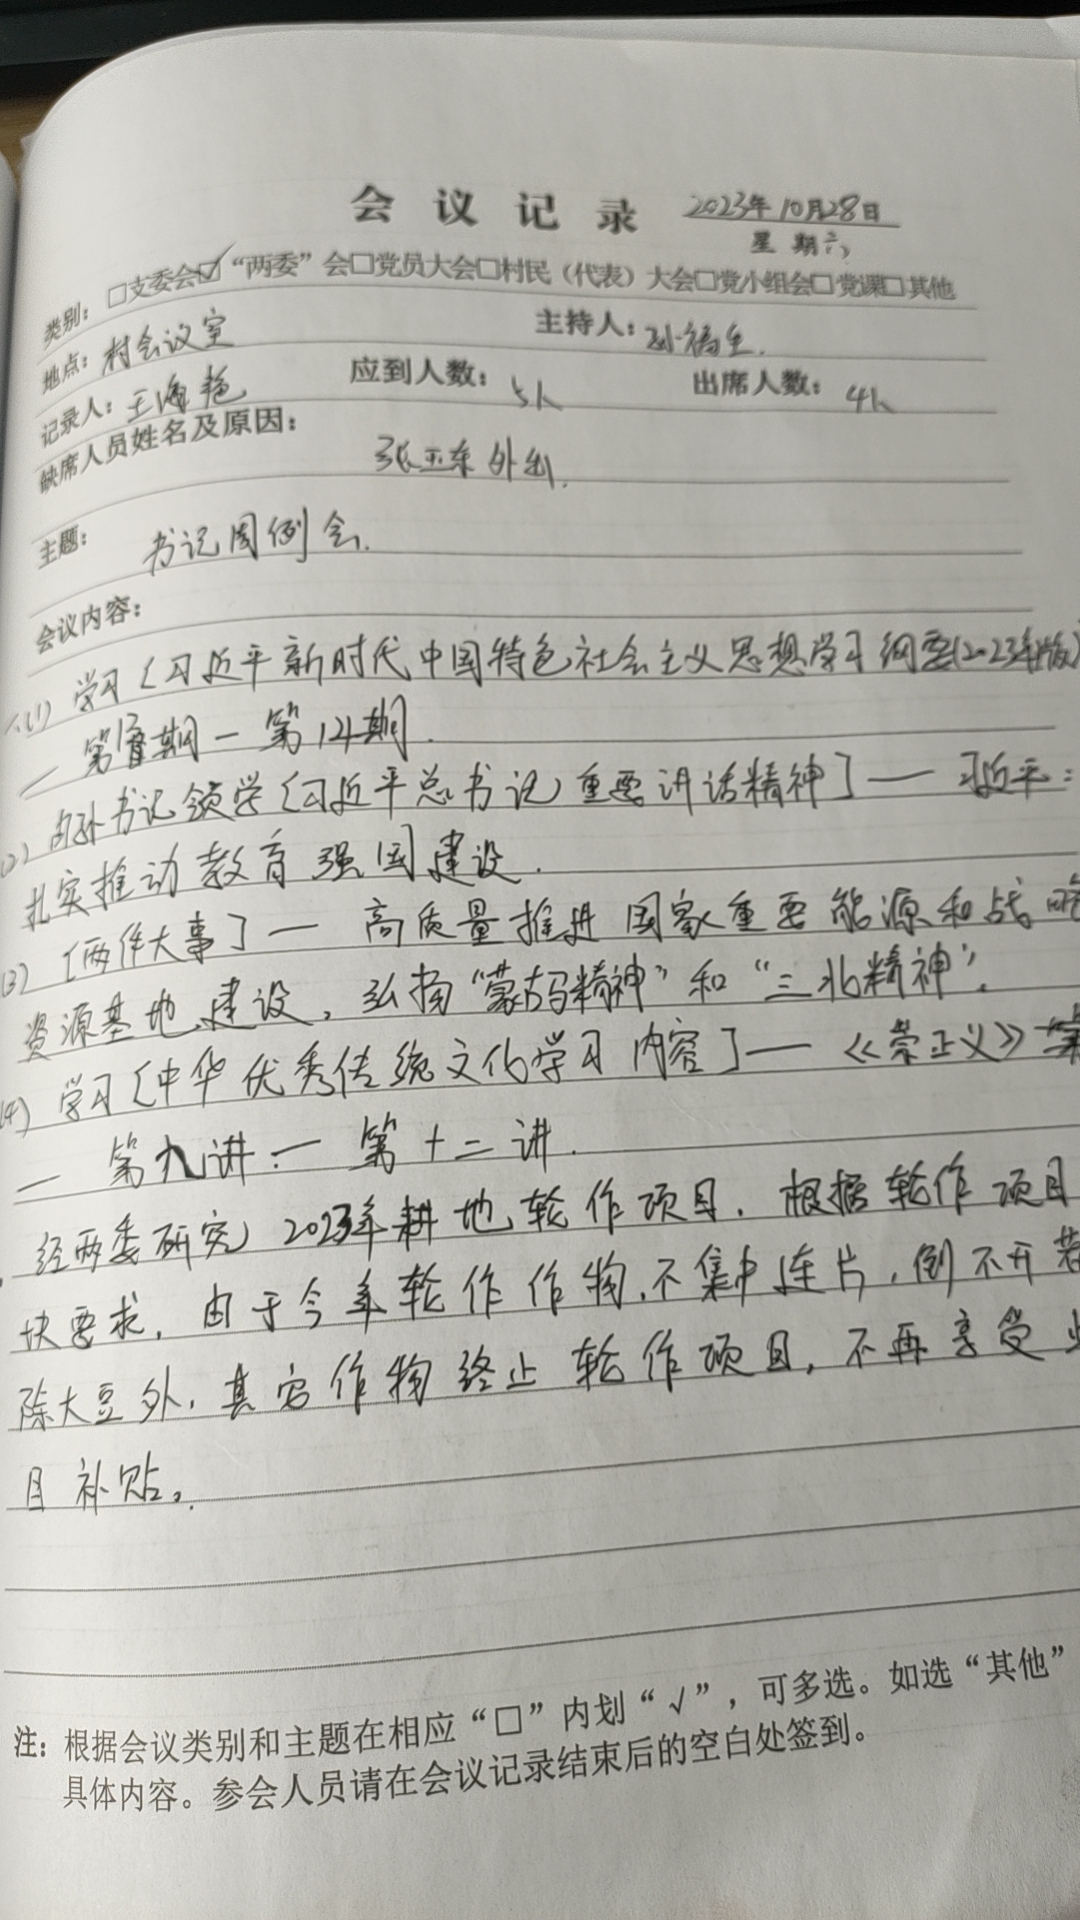 会议记录 2023年10月28日
星期六
类别：□支委会☑“两委”会□党员大会□村民（代表）大会□党小组会□党课□其他
地点：村会议室 主持人：孙福
记录人：王海艳 应到人数：5人 出席人数：4人
缺席人员姓名及原因：
张玉东外出.
主题： 书记周例会.
会议内容：
(1) 学习〔习近平新时代中国特色社会主义思想学习纲要(2023年版)
— 第 期 — 第14期.
(2) 由孙书记领学〔习近平总书记重要讲话精神〕— 习近平：
扎实推动教育强国建设.
(3)〔两件大事〕— 高质量推进国家重要能源和战略
资源基地建设，弘扬“蒙古马精神”和“三北精神”.
(4) 学习〔中华优秀传统文化学习内容〕—《崇正义》
— 第九讲 — 第十二讲.
经两委研究2023年耕地轮作项目. 根据轮作项目
块要求，由于今年轮作作物，不集中连片，倒不开茬
除大豆外，其它作物终止轮作项目，不再享受
目补贴。
注：根据会议类别和主题在相应“□”内划“√”，可多选。如选“其他”
具体内容。参会人员请在会议记录结束后的空白处签到。